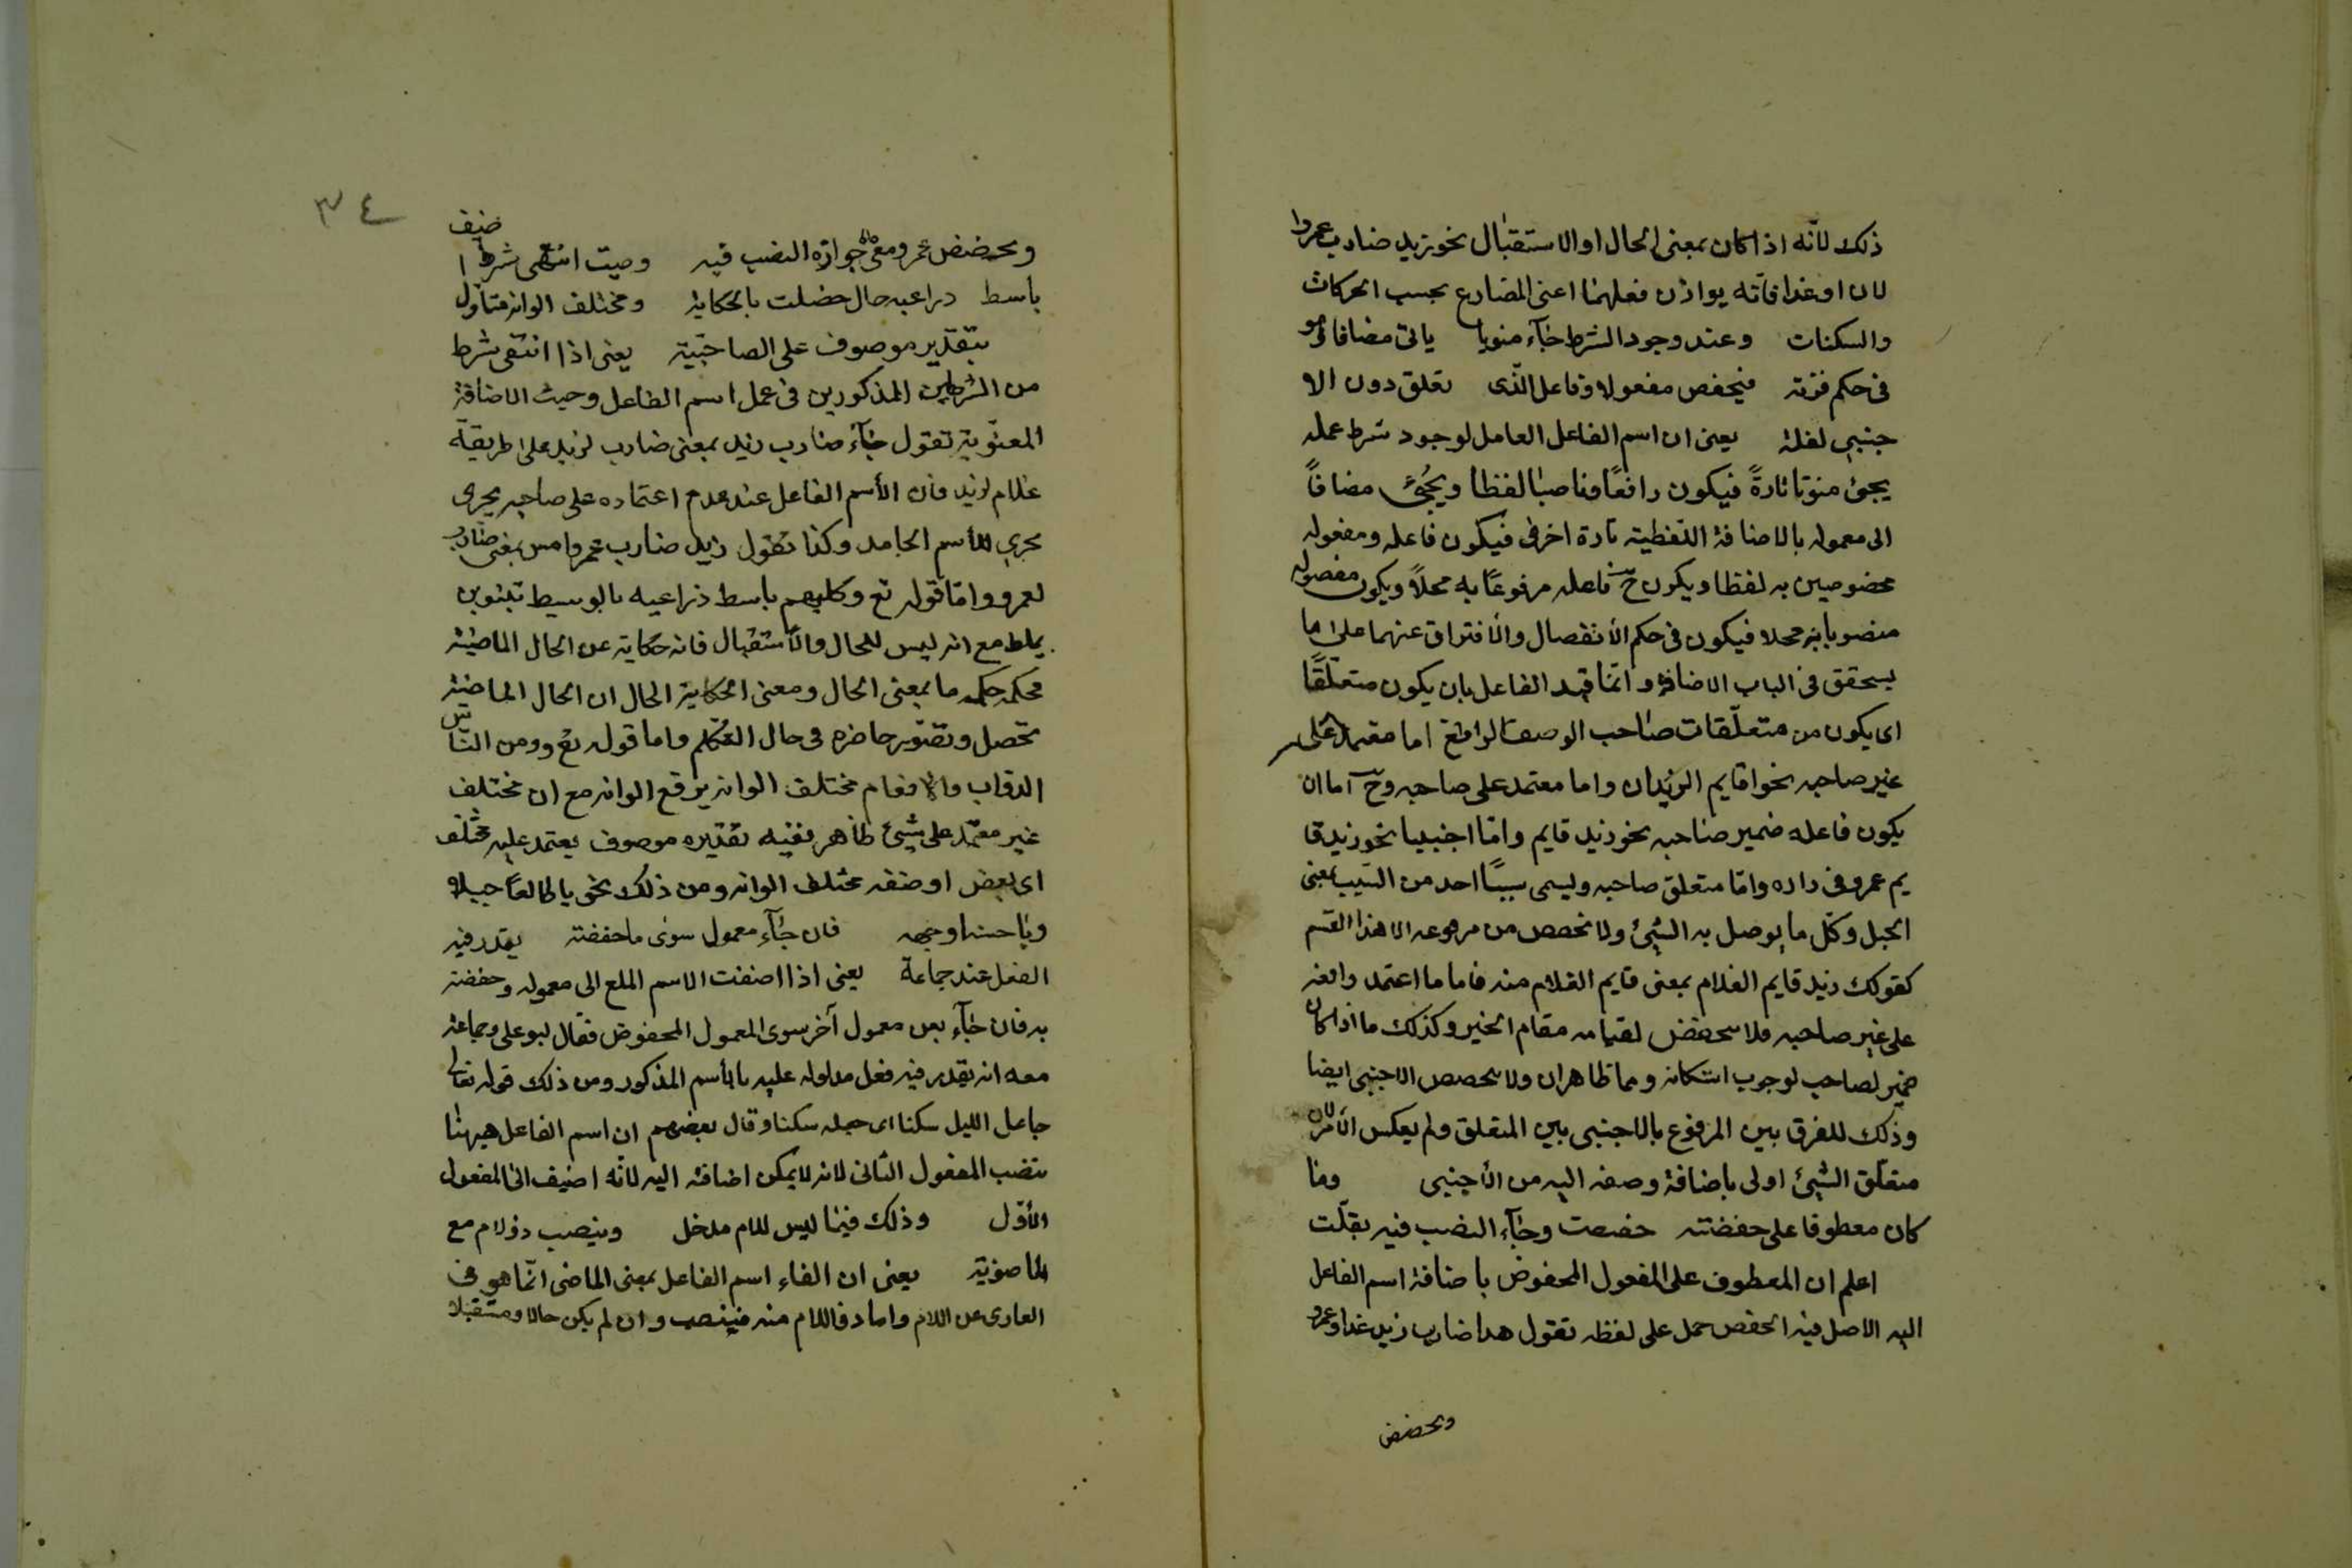 ذلك لانّه اذا كان بمعنى الحال او الاستقبال نحو زيد ضارب عمروا
لان او غدا فانّه يوازن فعلهما اعنى المضارع بحسب الحركات
والسكنات وعند وجود الشرط جآء منويا ياتى مضافا وهو
فى حكم فيخفض مفعولا وفاعل الّذى تعلق دون الا
جنبى لفلة يعنى ان اسم الفاعل العامل لوجود شرط عمله
يجئ منونا تارةً فيكون رافعًا وناصبا لفظا ويجُئ مضافاً
الى معموله بالاضافة اللفظية تارة اخرى فيكون فاعله ومفعوله
مخفوضين به لفظا ويكون ح فاعله مرفوعًا به محلاً ويكون مفعوله
منصوبا به محلا فيكون فى حكم الانفصال والافتراق عنهما على ما
يستحقق فى الباب الاضافة وانما قيد الفاعل بان يكون متعلّقًا
اى يكون من متعلّقات صاحب الوصف الرافع اما معتمد على
غير صاحبه نحو اقايم الزيدان واما معتمد على صاحبه وح اما ان
يكون فاعله ضمير صاحبه نحو زيد قايم وامّا اجنبيا نحو زيد قا
يم عمرو فى داره وامّا متعلق صاحبه ويسمى سببيًا احد من السّبب بمعنى
الحبل وكل ما يوصل به الشيئ ولا تخصص من مرفوعه الا هذا القسم
كقولك زيد قايم الغلام بمعنى قايم الغلام منه فاما ما اعتمد رافعه
على غير صاحبه فلا يخفض لقيامه مقام الخبر وكذلك ما اذا كان
ضمير لصاحب لوجوب استكانه وهما ظاهران ولا يخصص الاجنبى ايضا
وذلك للفرق بين المرفوع بالاجنبى بين المتعلق ولم يعكس الامر لان
متعلّق الشيئ اولى باضافة وصفه اليه من الاجنبى وما
كان معطوفا على خفضته خفضت وجآء النصب فيه بقلّت
اعلم ان المعطوف على المفعول المخفوض باضافة اسم الفاعل
اليه الاصل فيه الخفض حمل على لفظه تقول هدا ضارب زيد غدا وعمرو
ويخفض
٣٤
ويخفض عمرو ومع جوازه النصب فيه وحيث انتفى شرط ا ضيف
باسط دراعيه حال حصلت بالحكاية ومختلف الوانه متاول
بتقدير موصوف على الصاحبية يعنى اذا انتفى شرط
من الشرطين المذكورين فى عمل اسم الفاعل وحيث الاضافة
المعنّوية تقول جآء ضارب زيد بمعنى ضارب لزيد على طريقة
غلام لزيد فان الأسم الفاعل عند عدم اعتماده على صاحبه يجرى
مجرى الأسم الجامد وكذا تقول زيد ضارب عمرو امس بمعنى ضارب
لعمرو وامّا قوله تع وكلبهم باسط ذراعيه بالوسيط تبنوين
يلط مع انه ليس للحال والأستقبال فانه حكاية عن الحال الماضية
محكمه حكمه ما بمعنى الحال ومعنى الحكاية الحال ان الحال الماضية
تحصل وتصّور حاضره فى حال التكلم واما قوله تع وومن النّاس
الدواب والانعام مختلف الوانه يرفع الوانه مع ان مختلف
غير معتمد على شيئ ظاهر بفنيه تقديره موصوف يعتمد عليه مختلف
اى بعض او صنف مختلف الوانه ومن ذلك نحو يا طالعاً جبيلا
ويا حسنا وجهه فان جآء معمول سوى ما خفضته يقدر فيه
الفعل عند جماعة يعنى اذا اضفت الاسم الملع الى معموله وخفضته
به فان جآء بعن معمول آخر سوى المعمول المخفوض فقال ابو على وجماعة
معه انه يقدر فيه فعل مدلوله عليه بالأسم المذكور ومن ذلك قوله تعالى
جاعل الليل سكنا اى جعله سكنا وقال بعضهم ان اسم الفاعل هيهنا
ينصب المفعول الثانى لانه لا يمكن اضافته اليه لانّه اضيف الى المفعول
الأوّل وذلك فيما ليس للام مدخل وينصب ذو لام مع
الماضوية يعنى ان الفاء اسم الفاعل بمعنى الماضى انّما هو فى
العارى عن اللام واما دو اللام منه فينصب وان لم يكن حالا ومستقبلا